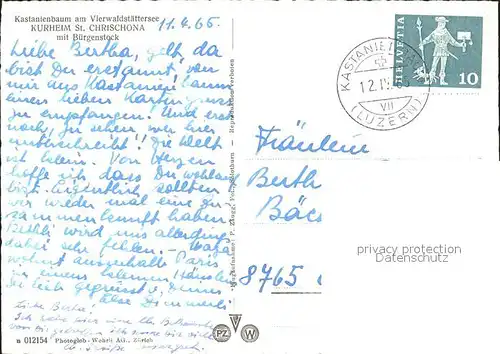 Kastanienbaum am Vierwaldstättersee
KURHEIM St. CHRISCHONA
mit Bürgenstock
11.4.66
Liebe Bertha, gelt da
bist Du erstaunt, von
mir aus Kastanienbaum
einen lieben Kartengruss
zu empfangen. Und erst
noch, zu sehen, wer hier
unterschreibt! Die Welt
ist klein. Von Herzen
hoffe ich dass Du wohlauf
bist. Eigentlich sollten
wir wieder mal eine Zu-
sammenkunft haben.
Bethli wird uns allerdings
dabei sehr fehlen. -
wohnt ausserhalb Paris
in einem kleinen Häuschen
Sei lieb gegrüsst v. Deiner
Else
Liebe Bertha!
n 012154 Photoglob-Wehrli AG., Zürich
Reproduktion verboten
PZ W
KASTANIENBAUM
12.IV.66
VII
(LUZERN)
HELVETIA
10
Fräulein
Berth
Bäc
8765
privacy protection
Datenschutz